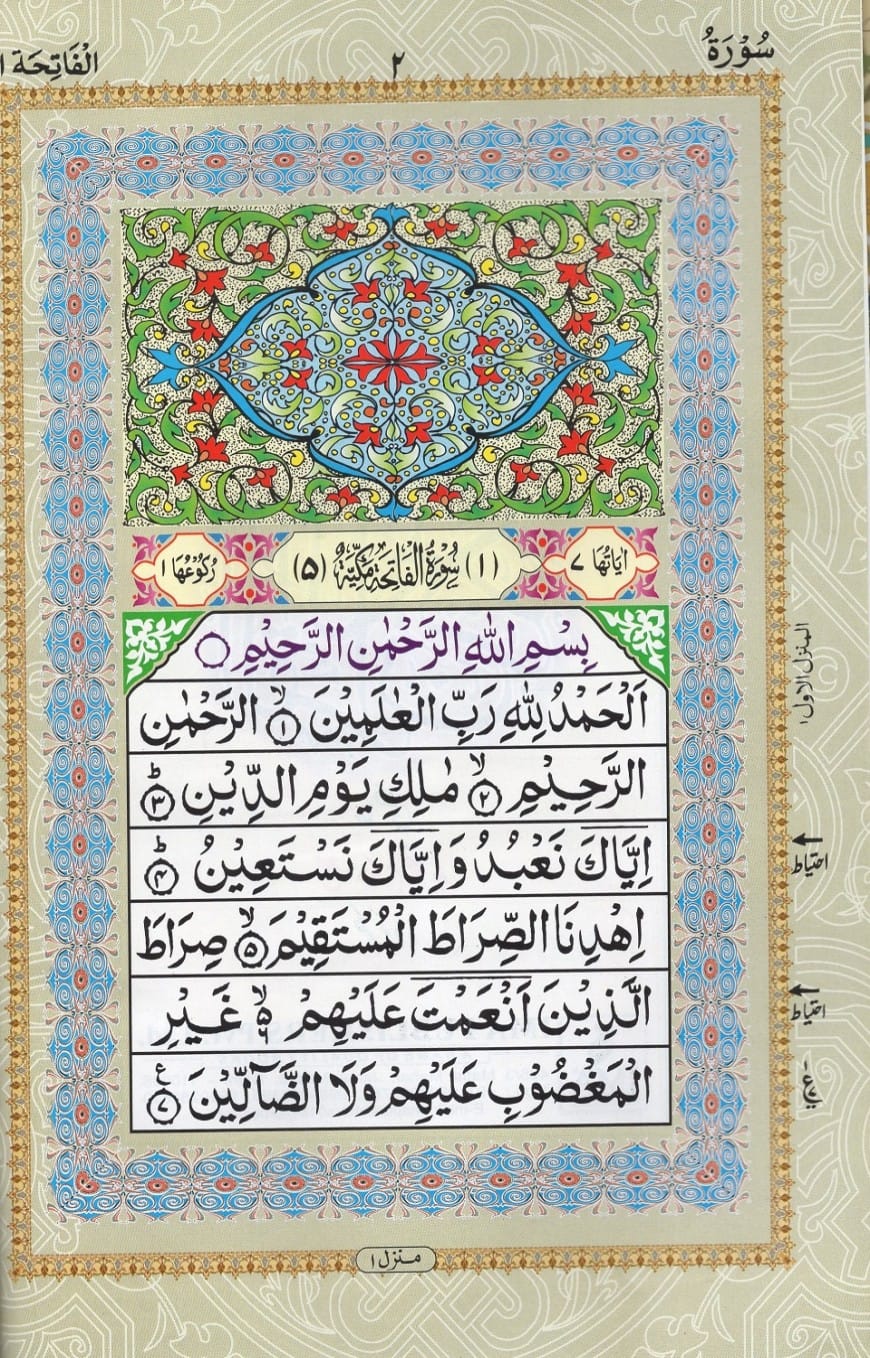 سُوْرَةُ ٢ الْفَاتِحَة ١
اٰیَاتُهَا ٧ (١) سُوْرَةُ الْفَاتِحَةِ مَكِّيَّةٌ (۵) رُكُوْعُهَا ١
بِسْمِ اللهِ الرَّحْمٰنِ الرَّحِيْمِ ۝
اَلْحَمْدُ لِلّٰهِ رَبِّ الْعٰلَمِيْنَ ۙ﴿١﴾ الرَّحْمٰنِ
الرَّحِيْمِ ۙ﴿٢﴾ مٰلِكِ يَوْمِ الدِّيْنِ ؕ﴿٣﴾
اِيَّاكَ نَعْبُدُ وَاِيَّاكَ نَسْتَعِيْنُ ؕ﴿۴﴾
اِهْدِنَا الصِّرَاطَ الْمُسْتَقِيْمَ ۙ﴿۵﴾ صِرَاطَ
الَّذِيْنَ اَنْعَمْتَ عَلَيْهِمْ ۙ۵﴿٦﴾ غَيْرِ
الْمَغْضُوْبِ عَلَيْهِمْ وَلَا الضَّآلِّيْنَ ࣖ﴿٧﴾
المنزل الاول ١
احتیاط
احتیاط
منزل ١